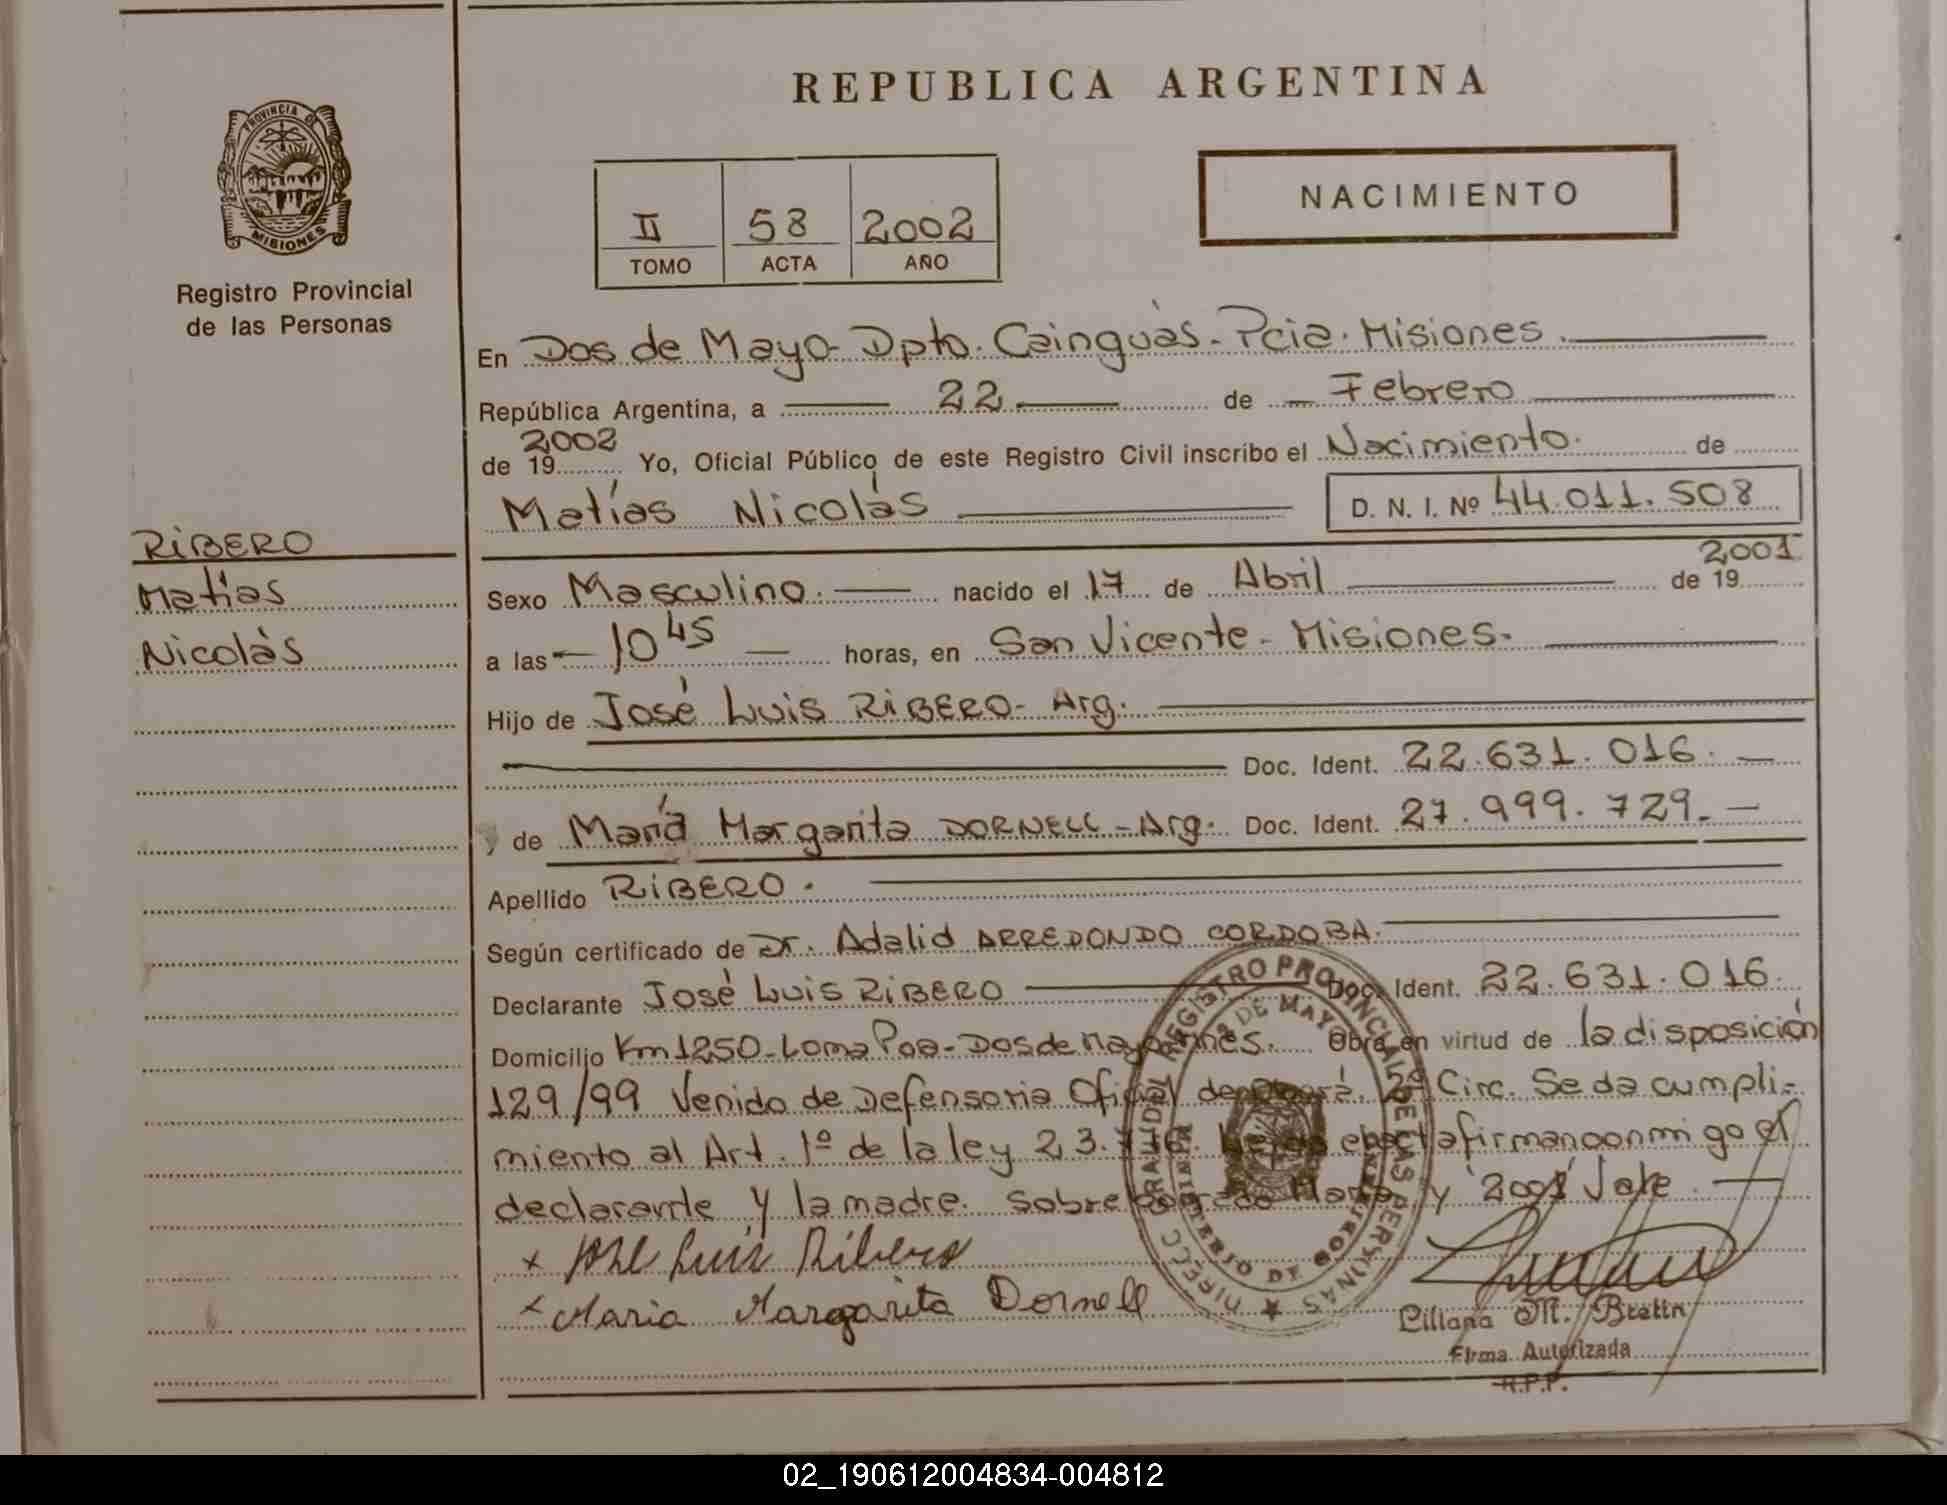 REPUBLICA ARGENTINA
PROVINCIA DE
MISIONES
Registro Provincial
de las Personas
II 58 2002
TOMO ACTA AÑO
NACIMIENTO
RIBERO
Matías
Nicolàs
En Dos de Mayo - Dpto. Cainguàs - Pcia. Misiones.
República Argentina, a 22 de Febrero
de 19 2002 Yo, Oficial Público de este Registro Civil inscribo el Nacimiento. de
Matías Nicolás D. N. I. Nº 44.011.508
Sexo Masculino. nacido el 17 de Abril de 19 2001
a las 10 45 horas, en San Vicente - Misiones.
Hijo de José Luis RIBERO - Arg.
Doc. Ident. 22.631.016.
y de María Margarita DORNELL - Arg. Doc. Ident. 27.999.729.
Apellido RIBERO.
Según certificado de Dr. Adalid ARREDONDO CORDOBA.
Declarante José Luis RIBERO Doc. Ident. 22.631.016.
Domicilio Km 1250 - Loma Poa - Dos de Mayo Mnes. Obra en virtud de la disposición
129/99 Venido de Defensoria Oficial de 2º Circ. Se da cumpli-
miento al Art. 1º de la ley 23. firman conmigo el
declarante y la madre. Sobre y 2001 Vale.
x José Luis Ribero
x Maria Margarita Dornell
REGISTRO PROVINCIAL DE LAS PERSONAS
2 DE MAYO
MINISTERIO DE GOBIERNO
Liliana M. Brettin
Firma Autorizada
R.P.P.
02_190612004834-004812